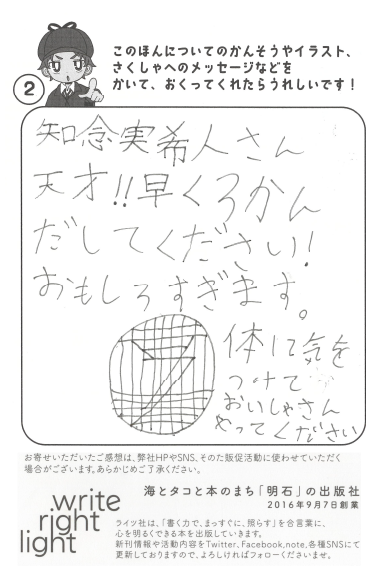 このほんについてのかんそうやイラスト、
さくしゃへのメッセージなどを
かいて、おくってくれたらうれしいです！
2
知念実希人さん
天才!!早くろかん
だしてください!
おもしろすぎます。
体に気を
つけて
おいしゃさん
やってください
お寄せいただいたご感想は、弊社HPやSNS、そのた販促活動に使わせていただく
場合がございます。あらかじめご了承ください。
write
right
light
海とタコと本のまち「明石」の出版社
2016年9月7日創業
ライツ社は、「書く力で、まっすぐに、照らす」を合言葉に、
心を明るくできる本を出版していきます。
新刊情報や活動内容をTwitter、Facebook、note、各種SNSにて
更新しておりますので、よろしければフォローくださいませ。